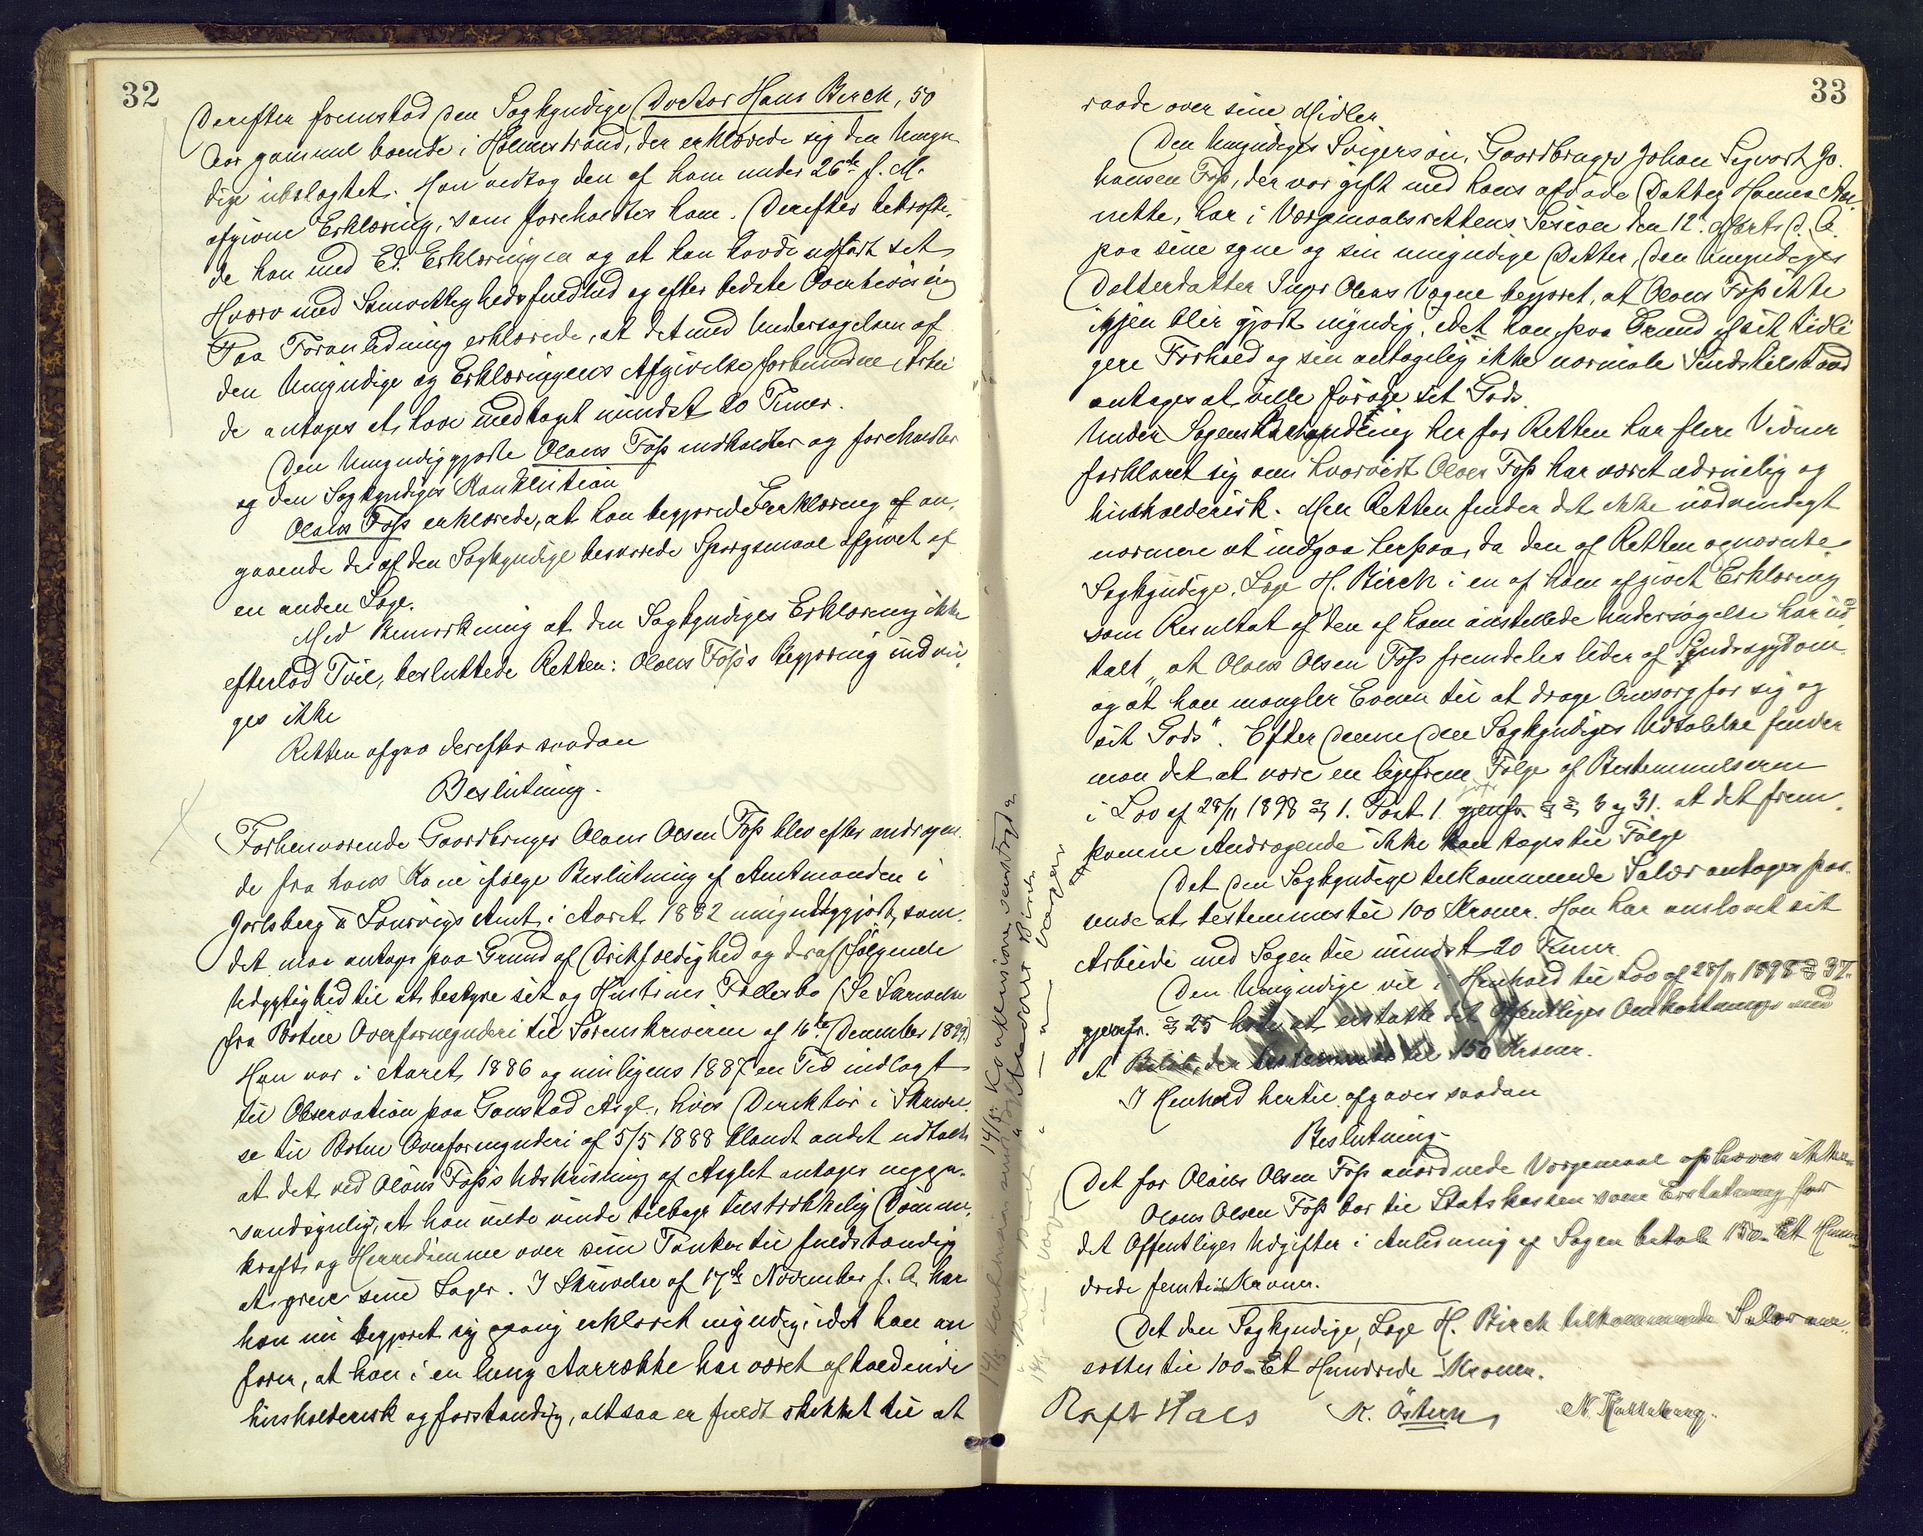 32
Derefter fremstod den Sagkyndige Doctor Hans Birch, 50
Aar gammel boende i Holmestrand, der erklærede sig den Umyn
dige ubeslægtet. Han vedtog den af ham under 26de f. M.
afgivne Erklæring, som foreholdtes ham. Derefter bekræfte,
de han med Ed. Erklæringen og at han havde udført sit
Hværv med Samvittighedsfuldhed og efter bedste Overbevisning
Paa Foranledning erklærede, at det med Undersøgelsen af
den Umyndige og Erklæringens Afgivelse forbundne Arbei
de antages at have medtaget mindst 20 Timer.
Den Umyndiggjorte Olaus Foss indkaldtes og foreholdtes
og den Sagkyndiges Konklution
Olaus Foss erklærede, at han begjærede Erklæring af an,
gaaende de af den Sagkyndige besvarede Spørgsmaal afgivet af
en anden Læge.
Med Bemærkning at den Sagkyndiges Erklæring ikke
efterlod Tvil, besluttede Retten: Olaus Foss's Begjæring indvil,
ges ikke
Retten afgav derefter saadan
Beslutning.
Forhenværende Gaardbruger Olaus Olsen Foss blev efter andragen
de fra hans Kone ifølge Beslutning af Amtmanden i
Jarlsberg & Laurvigs Amt i Aaret 1882 umyndiggjort, som
det maa antages paa Grund af Drikfældighed og deraf følgende
Udygtighed til at bestyre sit og Hustrues Fællesbo (Se Skrivelse
fra Botne Overformynderi til Sorenskriveren af 16de December 1899)
Han var i Aaret 1886 og muligens 1887 en Tid indlagt
til Observation paa Gaustad Asyl, hvis Direktør i Skrivel
se til Botne Overformynderi af 5/5 1888 blandt andet udtalte
at det ved Olaus Foss's Udskrivning af Asylet antages nogga.
sandsynlig, at han vilde vinde tilbage tilstrækkelig Dømme,
kraft og Herredømme over sine Tanker til fuldstændig
at greie sine Sager. I Skrivelse af 17de November f. A. har
han nu begjæret sig paany erklæret myndig, idet han an
fører, at han i en lang Aarrække har været afholdende
husholderisk og forstandig, altsaa er fuldt skikket til at
14/5 Konklusionen
33
raade over sine Midler
Den Umyndiges Svigersøn, Gaardbruger Johan Sigvart Jo.
hansen Foss, der var gift med hans afdøde Datter Hanna An
nette, har i Værgemaalsrettens Session den 12te Marts d. A.
paa sine egne og sin umyndige Datter, den Umyndiges
Datterdatter Inger Oleas Vegne begjæret, at Olaus Foss ikke
igjen blir gjort myndig, idet han paa Grund af sit tidli
gere Forhold og sin antagelig ikke normale Sindstilstand
antages at ville forøde sit Gods.
Under Sagens Behandling her for Retten har flere Vidner
forklaret sig om hvorvidt Olaus Foss har været ædruelig og
husholderisk. Men Retten finder det ikke nødvendigt
nærmere at indgaa herpaa, da den af Retten opnævnte
Sagkyndige, Læge H. Birch i en af ham afgivet Erklæring
som Resultat af den af ham anstillede Undersøgelse har ud
talt „at Olaus Olsen Foss fremdeles lider af Sindssygdom
og at han mangler Evnen til at drage Omsorg for sig og
sit Gods". Efter denne den Sagkyndiges Udtalelse finder
man det at være en ligefrem Følge af Bestemmelserne
i Lov af 28/11 1898 § 1. Post 1 jvnfr §§ 3 og 31. at det frem,
komne Andragende ikke kan tages til Følge
Det den Sagkyndige tilkommende Salær antages pas.
sende at bestemmes til 100 Kroner. Han har anslaaet sit
Arbeide med Sagen til mindst 20 Timer.
Den Umyndige vil i Henhold til Lov af 28/11 1898 § 37.
jvnfr. § 25 have at erstatte det Offentliges Omkostninger med
et Beløb, der bestemmes til 150 Kroner.
I Henhold hertil afgaves saadan
Beslutning.
Det for Olaus Olsen Foss anordnede Værgemaal ophæves ikke
Olaus Olsen Foss bør til Statskassen som Erstatning for
det Offentliges Udgifter i Anledning af Sagen betale 150 - Et Hun
drede femti Kroner.
Det den Sagkyndige, Læge H. Birch tilkommende Salær an
sættes til 100 - Et Hundrede Kroner.
Rafts Hals K. Østern